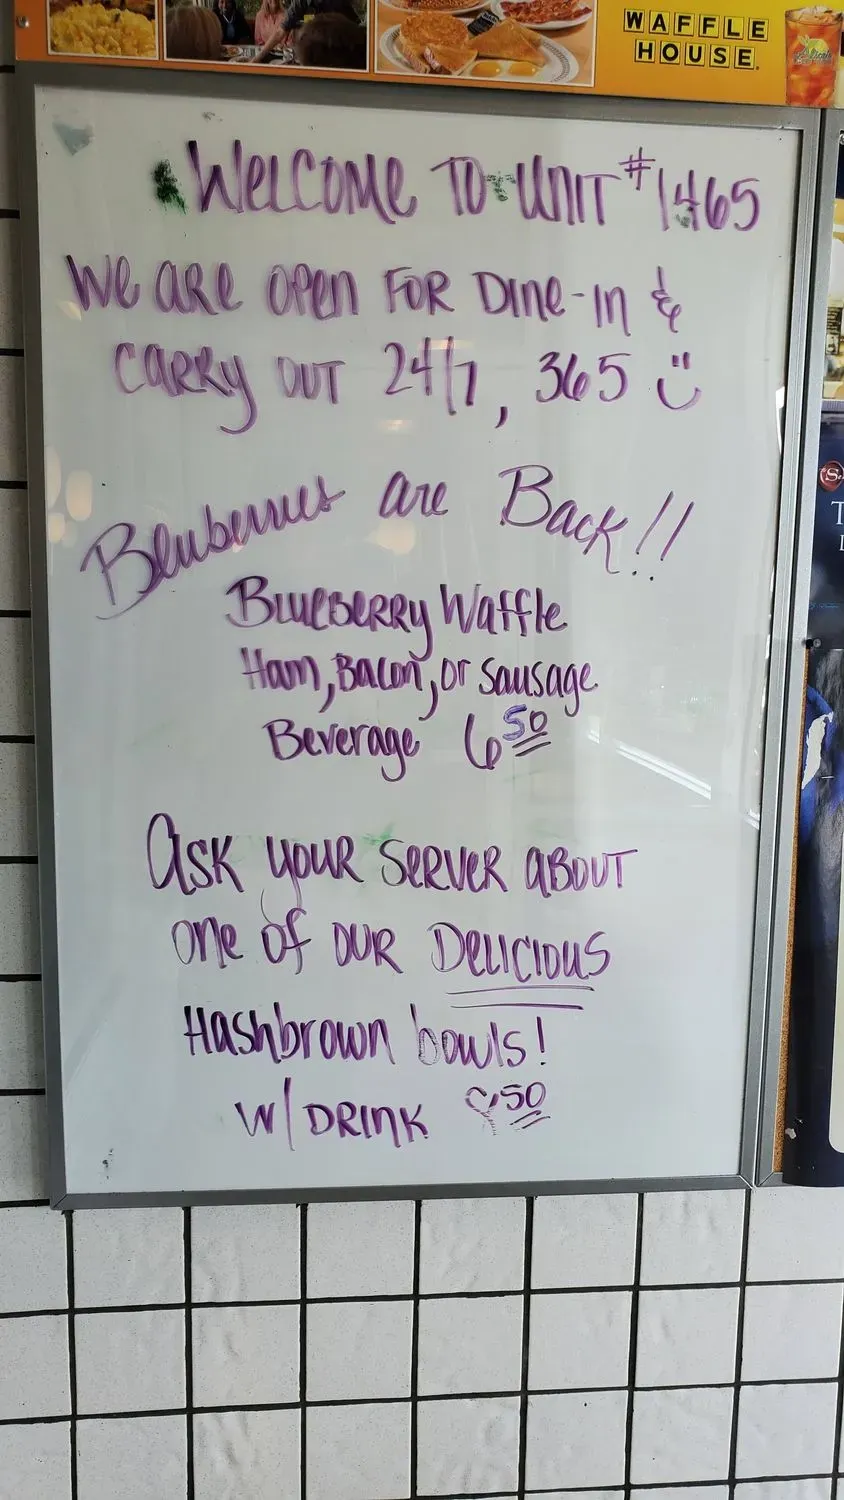 WAFFLE
HOUSE
WELCOME TO UNIT #1465
WE ARE OPEN FOR DINE-IN &
CARRY OUT 24/7, 365
Bluberries are Back!!
BLUEBERRY Waffle
Ham, Bacon, or Sausage
Beverage 6 50
ASK YOUR SERVER ABOUT
one of OUR DELICIOUS
Hashbrown bowls!
W/ DRINK 8 50